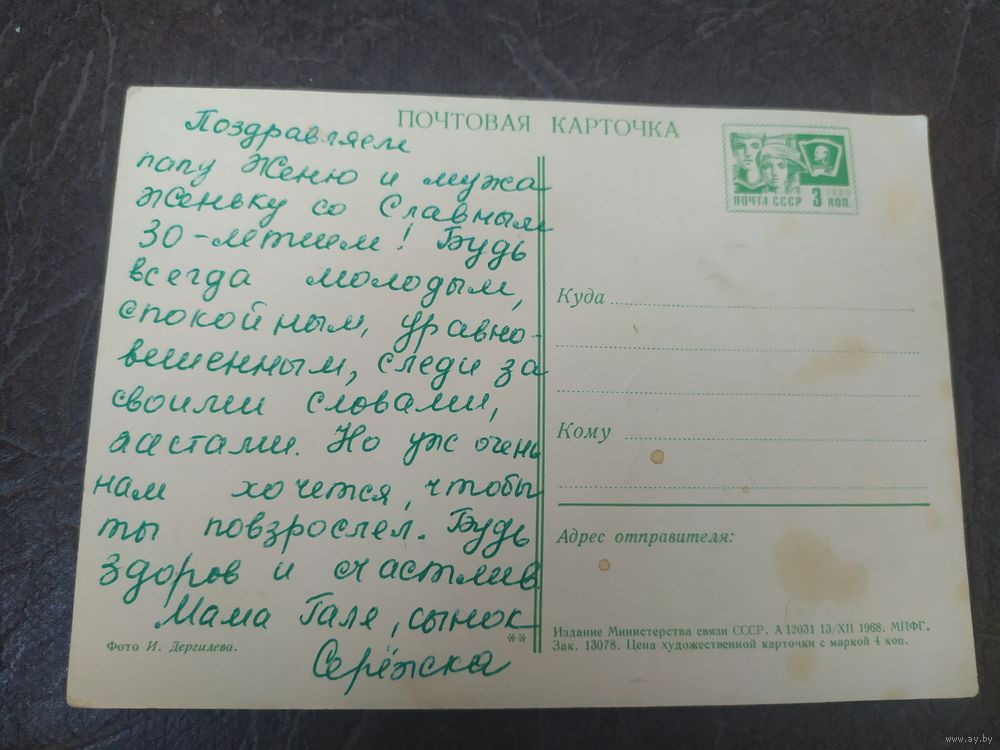 ПОЧТОВАЯ КАРТОЧКА
Поздравляем
папу Женю и мужа
Женьку со Славным
30-летием! Будь
всегда молодым,
спокойным, уравно-
вешенным, следи за
своими словами,
жестами. Но уж очень
нам хочется, чтобы
ты повзрослел. Будь
здоров и счастлив.
Мама Галя, сынок
Серёжка
Фото И. Дергилева.
**
ПОЧТА СССР 3 КОП.
1966
Куда
Кому
Адрес отправителя:
Издание Министерства связи СССР. А 12031 13/XII 1968. МПФГ.
Зак. 13078. Цена художественной карточки с маркой 4 коп.
www.ay.by